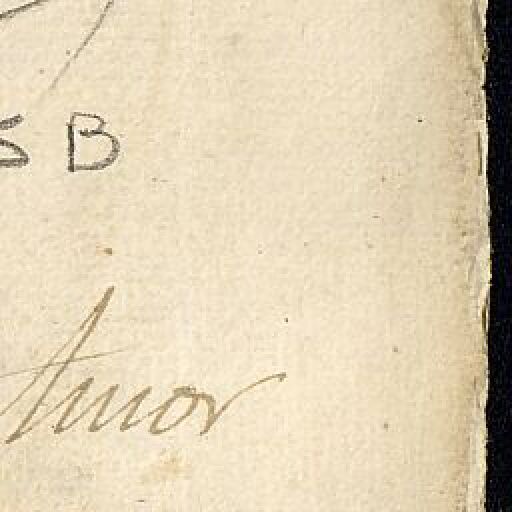 S B
Amor